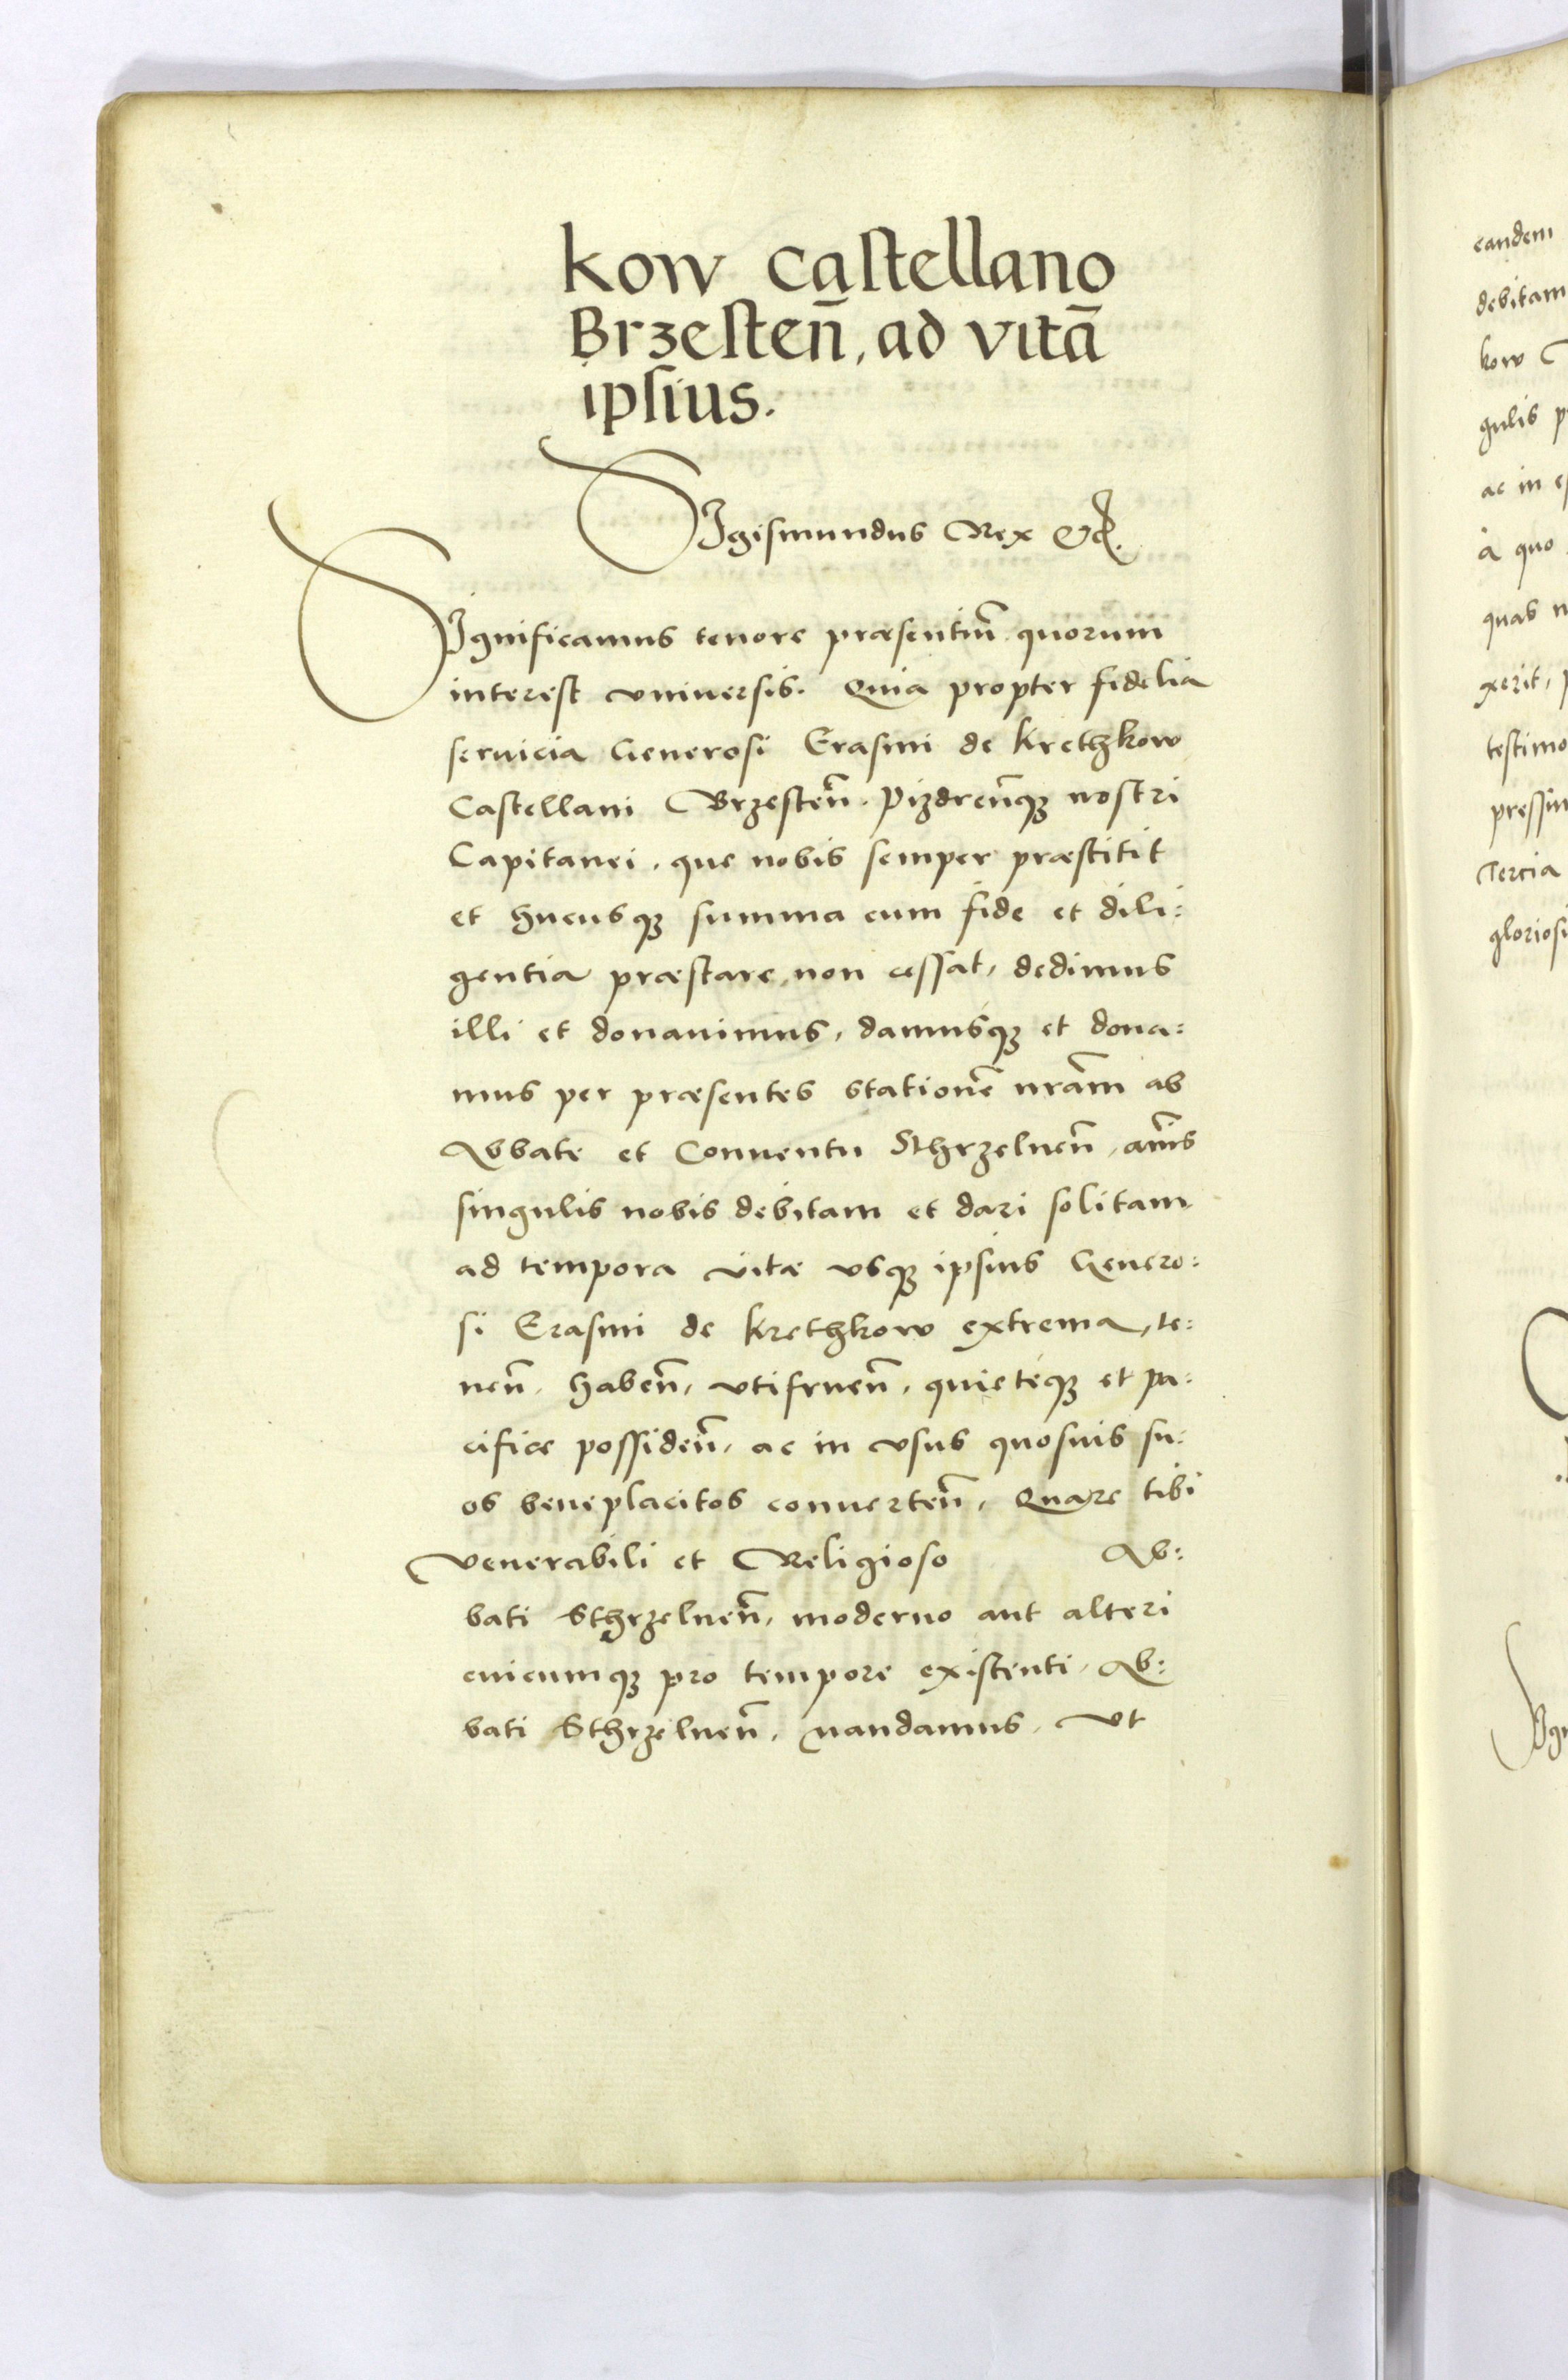 kow castellano
Brzesteñ, ad vitā
ipsius.
SIgismundus Rex etc.
SIgnificamus tenore præsentiū quorum
interest vniuersis. Quia propter fidelia
seruicia Generosi Erasmi de Krethkow
Castellani Brzesteñ. Pizdreñqꝫ nostri
Capitanei, que nobis semper præstitit
et hucusqꝫ summa cum fide et dili:
gentia præstare, non cessat, dedimus
illi et donauimus, damusqꝫ et dona:
mus per præsentes stationē nr̄am ab
Abbate et Conuentu Sthrzelneñ, annis
singulis nobis debitam et dari solitam
ad tempora vitæ vsqꝫ ipsius Genero:
si Erasmi de Krethkow extrema, te:
neñ. habeñ, vtifrueñ, quieteqꝫ et pa:
cifice possideñ, ac in vsus quosuis su:
os beneplacitos conuerteñ, Quare tibi
Venerabili et Religioso Ab:
bati Sthrzelneñ, moderno aut alteri
cuicumqꝫ pro tempore existenti, Ab:
bati Sthrzelneñ, mandamus, Vt
eandem
debitam
kow
gulis
ac in
à quo
quas
xerit,
testimo
pressim
Tercia
gloriosi